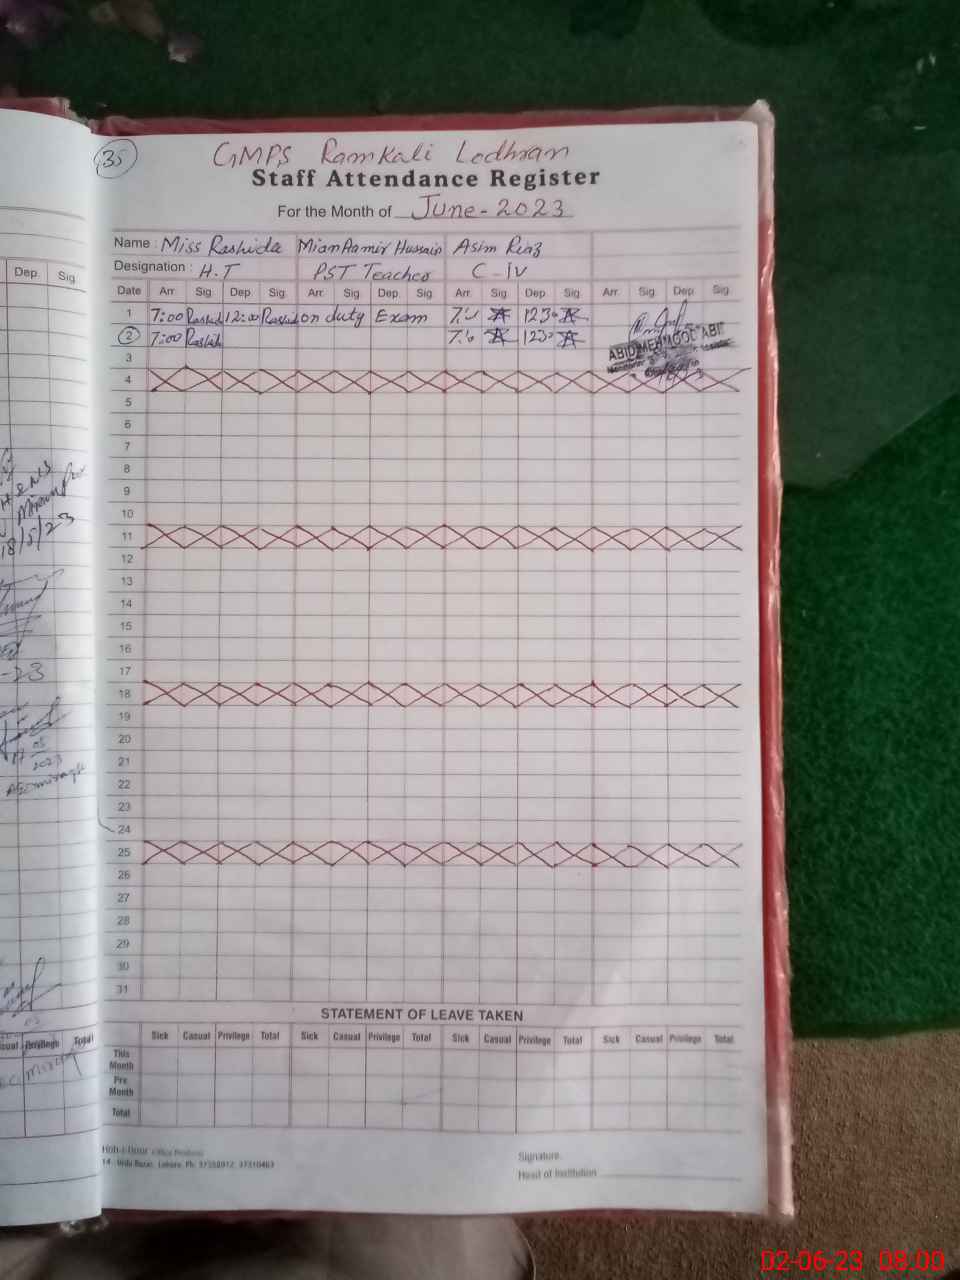 35
GMPS Ramkali Lodhran
Staff Attendance Register
For the Month of June-2023
Name : Miss Rashida Mian Aamir Hussain Asim Riaz
Designation : H.T PST Teacher C-IV
Date Arr. Sig. Dep. Sig. Arr. Sig. Dep. Sig. Arr. Sig. Dep. Sig. Arr. Sig. Dep. Sig.
1 7:00 Rashid 12:00 Rashid on duty Exam 1230
2 7:00 Rashid 1230
ABID
3
4
5
6
7
8
9
10
11
12
13
14
15
16
17
18
19
20
21
22
23
24
25
26
27
28
29
30
31
STATEMENT OF LEAVE TAKEN
Sick Casual Privilege Total Sick Casual Privilege Total Sick Casual Privilege Total Sick Casual Privilege Total
This Month
Pre Month
Total
Office Products
14 - Urdu Bazar, Lahore. Ph: 37358912, 37310463
Signature.
Head of Institution
Dep. Sig.
18/5/23
-23
2023
Privilege Total
02-06-23 08.00